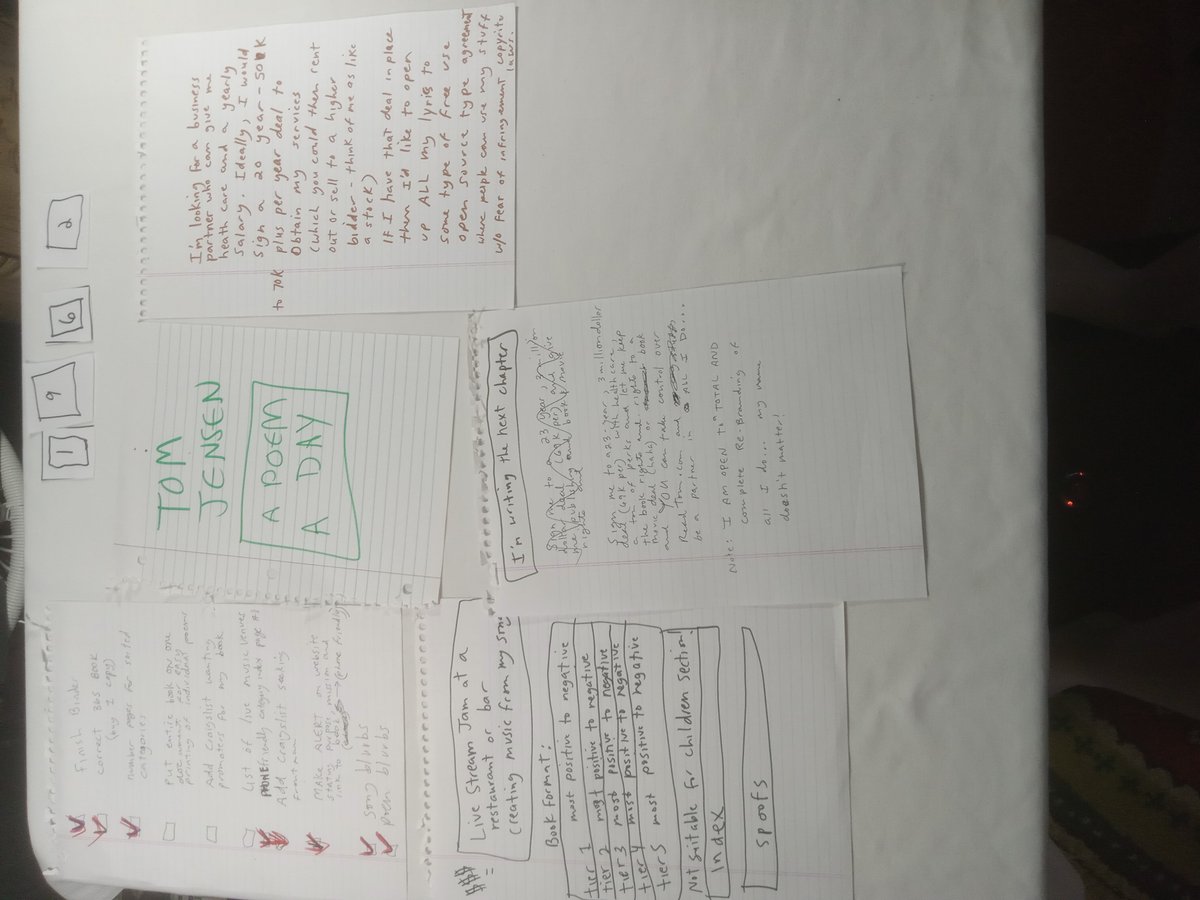 1
9
6
2
Finish Binder
correct 365 Book
(only 1 copy)
number pages for sorted
categories
Put entire book on one
document for easy
printing of individual poems
Add Craigslist wanting
promoters for my book
List of live music venues
PHONE friendly category index page #1
Add Craigslist seeking
front man
MAKE ALERT on website
stating purpose mission and
link to phone friendly
song blurbs
poem blurbs
TOM
JENSEN
A POEM
A DAY
I'm looking for a business
partner who can give me
heath care and a yearly
salary. Ideally, I would
sign a 20 year - 50K
to 70K plus per year deal to
Obtain my services
(which you could then rent
out or sell to a higher
bidder - think of me as like
a stock)
If I have that deal in place
then I'd like to open
up ALL my lyrics to
some type of free use
open source type agreement
where people can use my stuff
w/o fear of infringement copyrite
laws.
$$$ = Live Stream Jam at a
restaurant or bar
(creating music from my song
Book format:
tier 1 most positive to negative
tier 2 most positive to negative
tier 3 most positive to negative
tier 4 most positive to negative
tier 5 most positive to negative
Not Suitable for children section
Index
spoofs
I'm writing the next chapter
Sign me to a 23 year, 3 million
dollar deal (69K per) and give
me publishing and book + movie
rights
Sign me to a 23-year, 3 million dollar
deal (69K per) with health care,
a ton of perks and let me keep
the book rights and rights to a
movie deal (haha) or book
and YOU can take control over
ReadTom.com and
be a partner in ALL I DO...
Note: I AM OPEN TO "TOTAL AND
complete Re-Branding of
all I do... my name
doesn't matter!